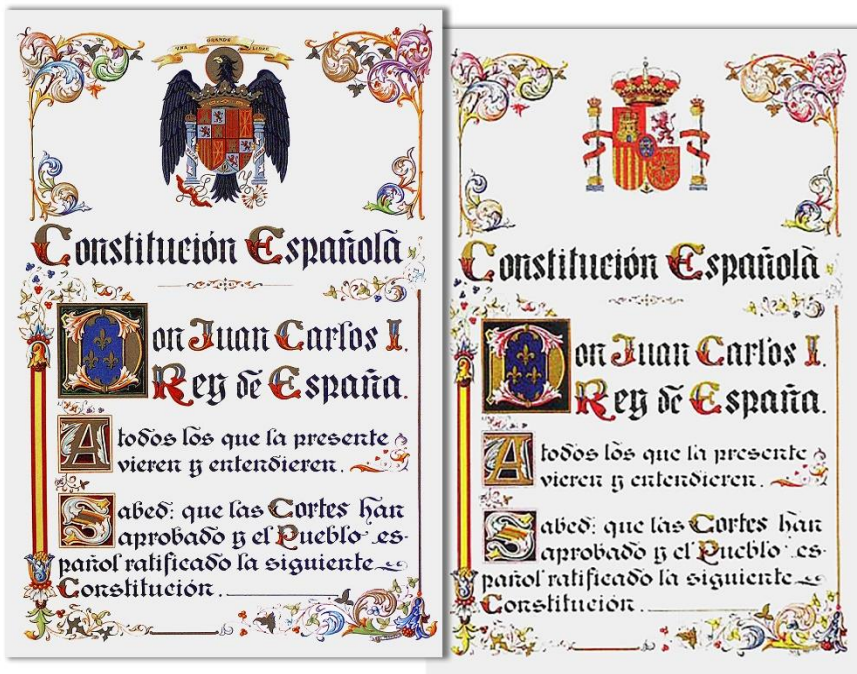 UNA GRANDE LIBRE
Constitución Española
Don Juan Carlos I.
Rey de España.
A todos los que la presente
vieren y entendieren.
Sabed: que las Cortes han
aprobado y el Pueblo es-
pañol ratificado la siguiente
Constitución.
Constitución Española
Don Juan Carlos I.
Rey de España.
A todos los que la presente
vieren y entendieren.
Sabed: que las Cortes han
aprobado y el Pueblo es-
pañol ratificado la siguiente
Constitución.